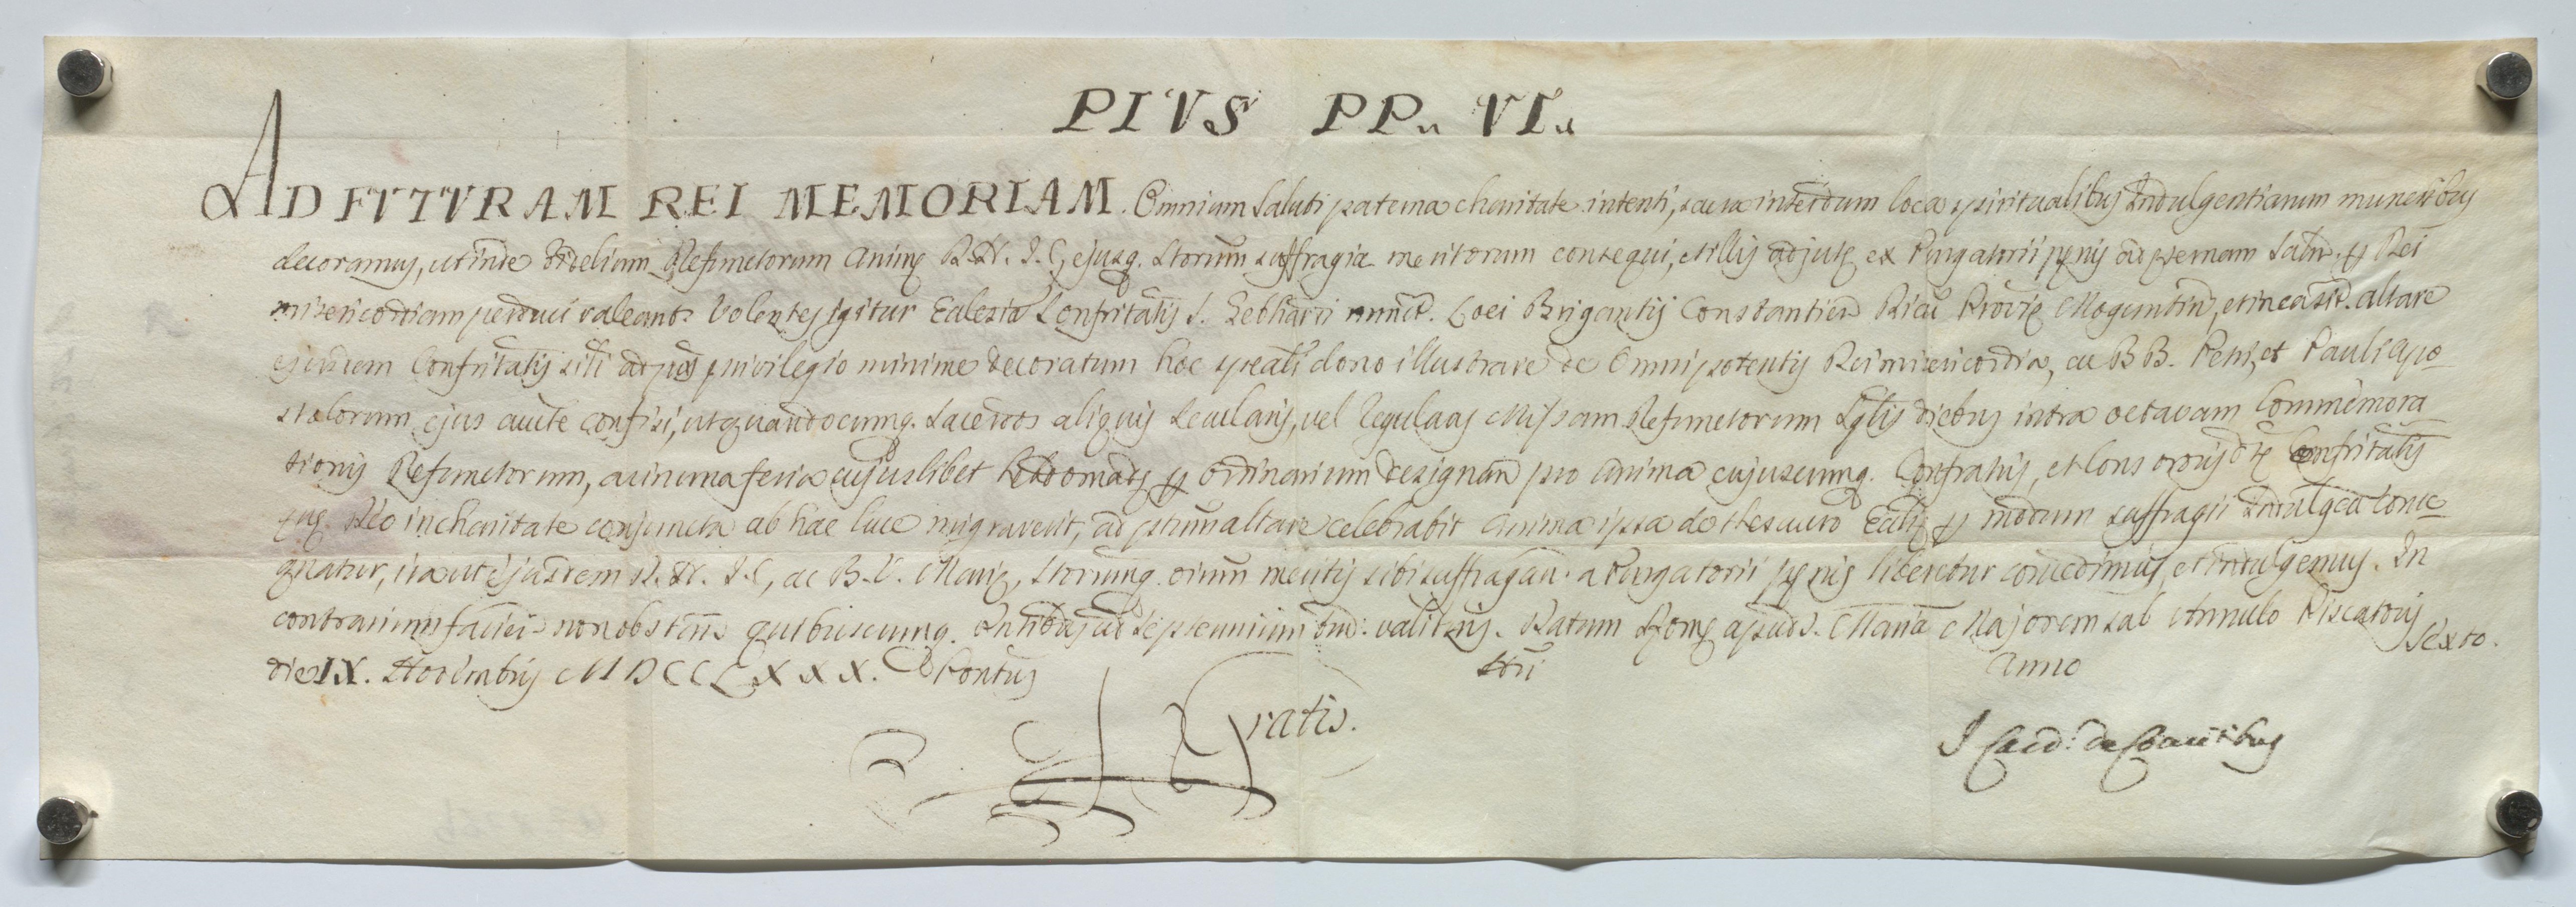 PIVS PP. VI.
AD FVTVRAM REI MEMORIAM. Omnium Saluti paterna charitate intenti, sacra interdum loca spiritualibus Indulgentiarum muneribus
decoramus, ut inde Fidelium Defunctorum Animę D. N. J. C. ejusq. Storum suffragia meritorum consequi, et illis adjutę ex Purgatorii pęnis ad ęternam Salutem Dei
misericordiam perduci valeant. Volentes igitur Ecclesia Confritatis S. Gebhardi Loci Brigantis Constantien Provię Moguntin, et in ea sit. altare
ejusdem Confritatis privilegio minime decoratum hoc speali dono illustrare de Omnipotentis Dei misericordia, ac BB. Petri, et Pauli Apo
stolorum ejus aucte confisi, ut quandocumq. Sacerdos aliquis Secularis, vel Regularis Missam Defunctorum diebus intra octavam Commemora
tionis Defunctorum, ac in una feria cujuslibet hebdomadę p Ordinarium designan pro Anima cujuscumq. Confratris, et Cons orris dtę Confritatis
quę Deo in charitate conjuncta ab hac luce migraverit, ad altare celebrabit Anima ipsa de thesauro Ecclię p modum suffragii Indulgeam conse
quatur, ita ut ejusdem D. N. J. C., ac B. V. Marię, Storumq. oium meritis sibi suffragan. a Purgatorii pęnis liberetur concedimus, et indulgemus. In
contrarium facien non obstan quibuscumq. ad septennium valituris. Datum Romę apud S. Mariam Majorem sub Annulo Piscatoris
die IX. Novembris MDCCLXXX. Pontus Nri Anno Sexto.
Gratis.
J Card: de Comitibus